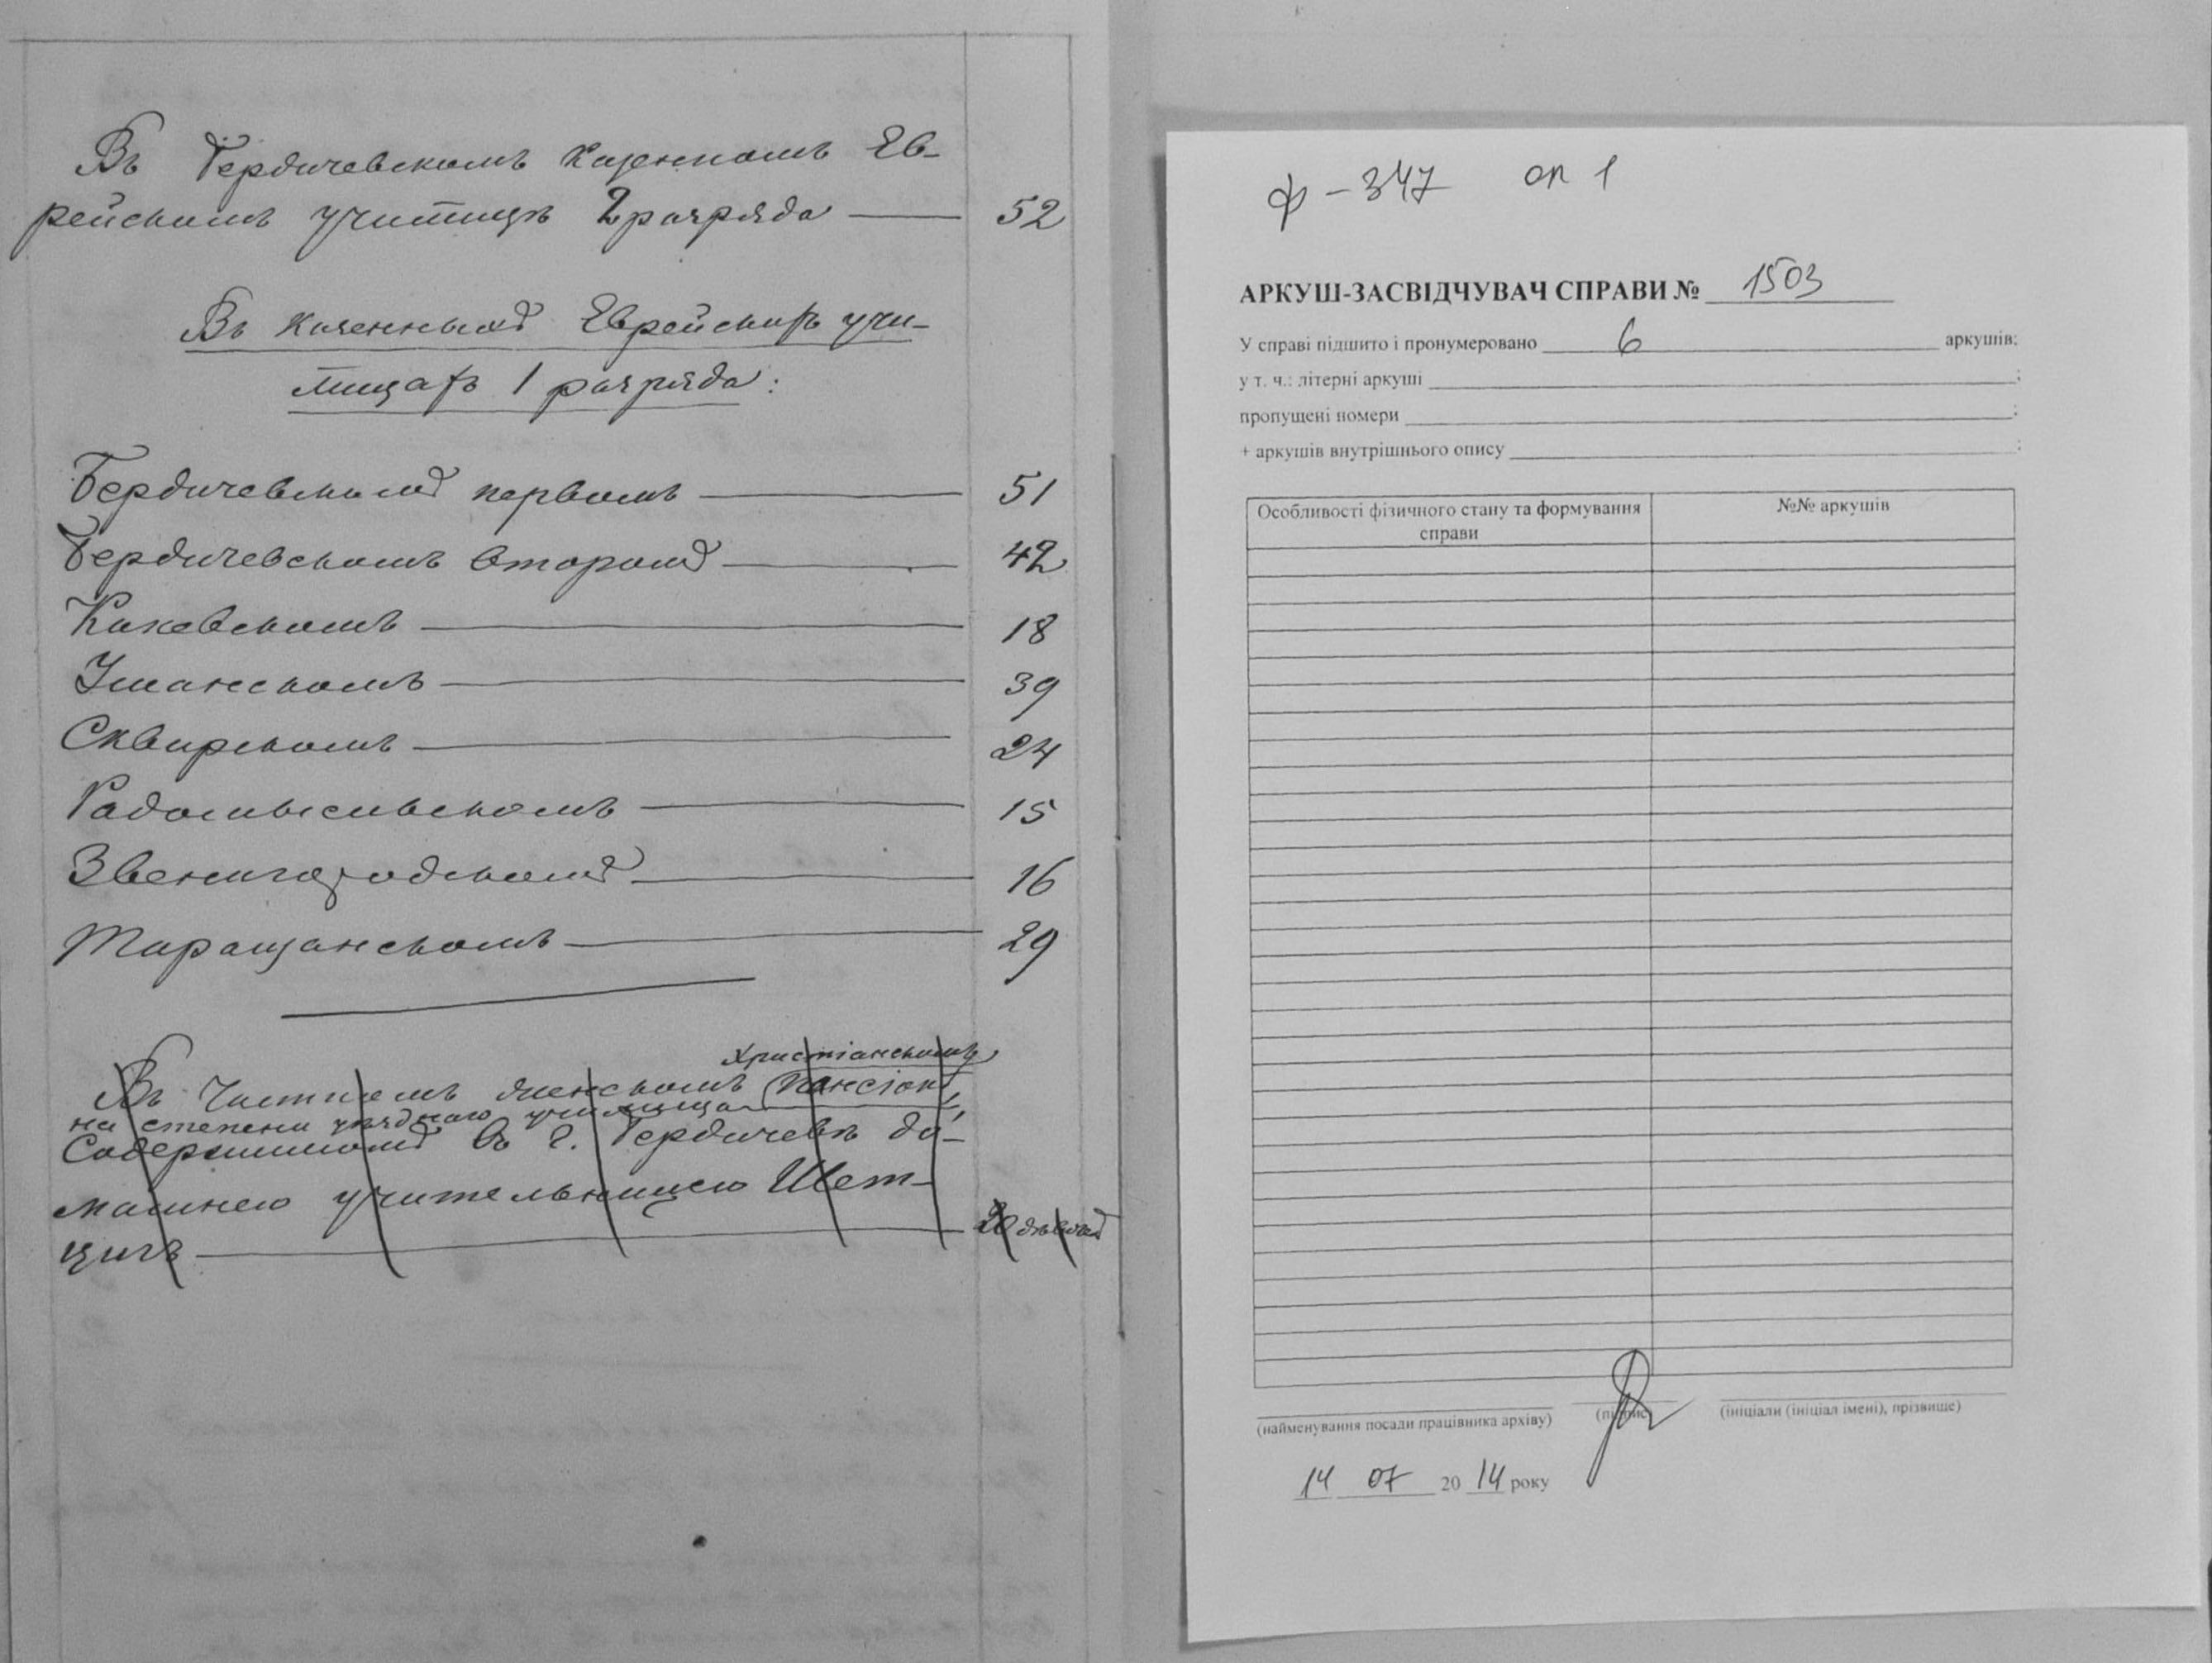 Въ Бердичевскомъ Казенномъ Ев-
рейскомъ училищѣ 2 разряда — 52
Въ Казенныхъ Еврейскихъ учи-
лищахъ 1 разряда:
Бердичевскомъ первомъ — 51
Бердичевскомъ второмъ — 42
Каневскомъ — 18
Уманскомъ — 39
Сквирскомъ — 24
Радомысльскомъ — 15
Звенигородскомъ — 16
Таращанскомъ — 29
Христіанскомъ
Въ Частномъ женскомъ пансіонѣ,
на степени уѣзднаго училища
Содержимомъ въ г. Бердичевѣ до-
машнею учительницею Шет-
цигъ — 20 дѣвицъ
ф - 347 оп 1
АРКУШ-ЗАСВІДЧУВАЧ СПРАВИ № 1503
У справі підшито і пронумеровано 6 аркушів;
у т. ч.: літерні аркуші ;
пропущені номери ;
+ аркушів внутрішнього опису ;
Особливості фізичного стану та формування справи
№№ аркушів
(найменування посади працівника архіву) (підпис) (ініціали (ініціал імені), прізвище)
14 07 2014 року